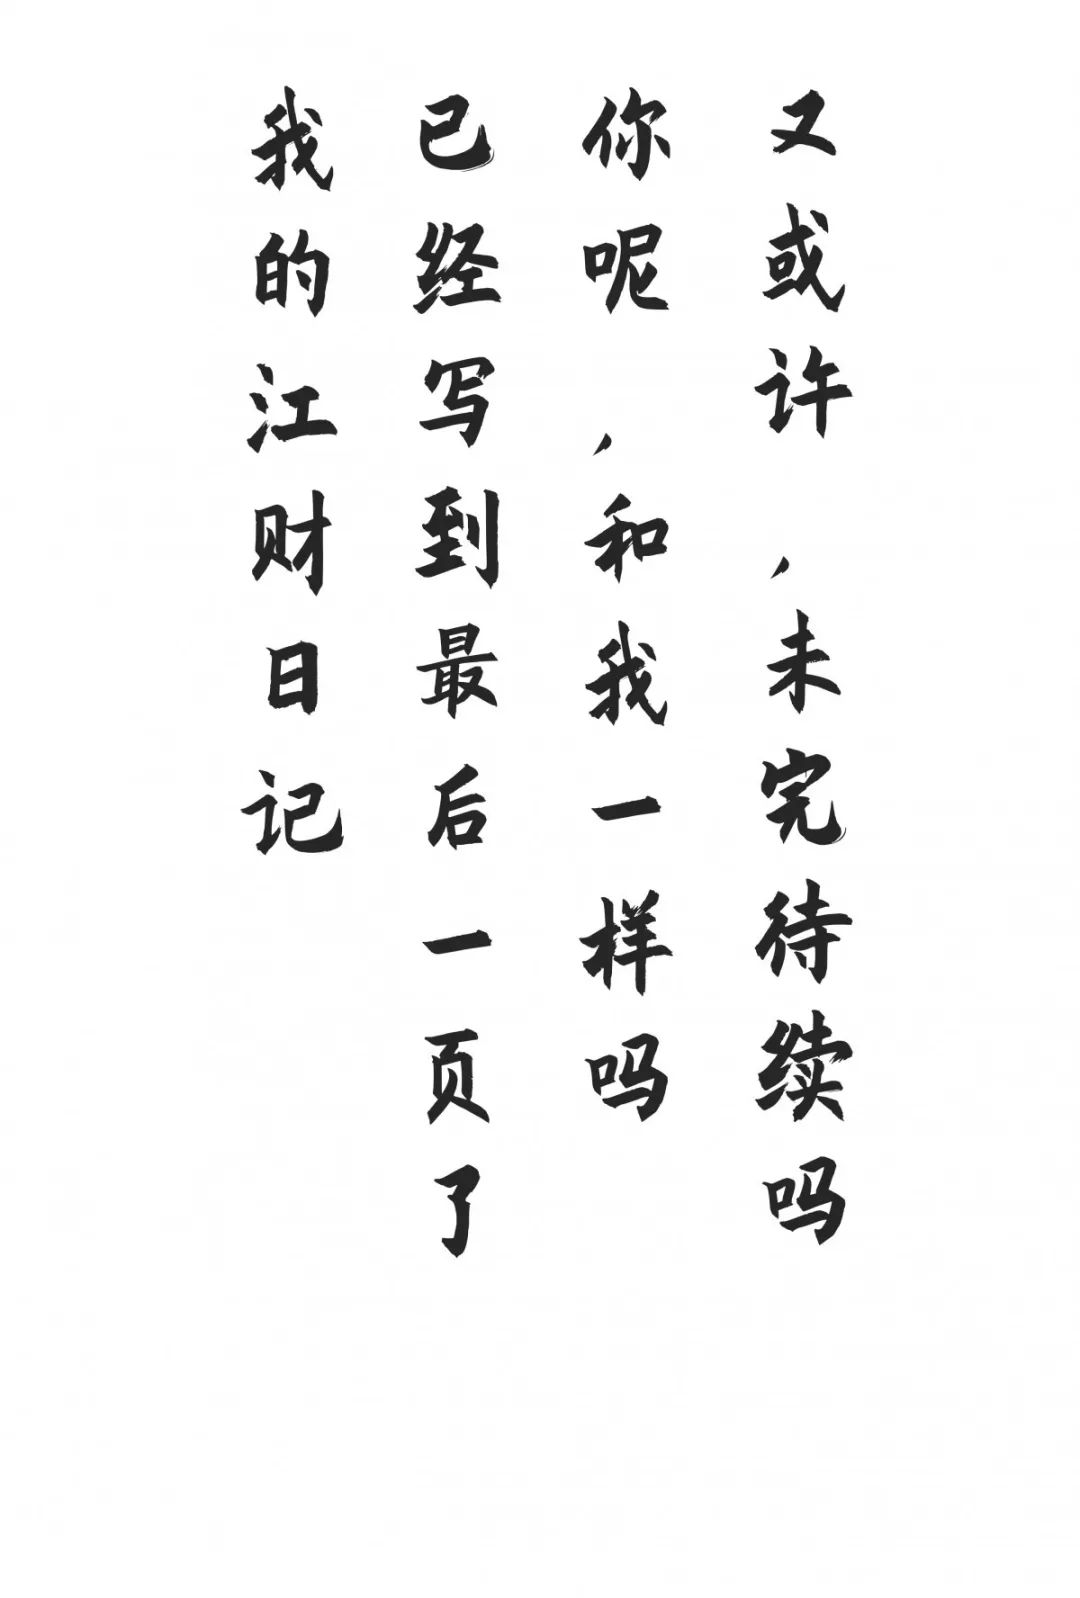 我的江财日记
已经写到最后一页了
你呢，和我一样吗
又或许，未完待续吗